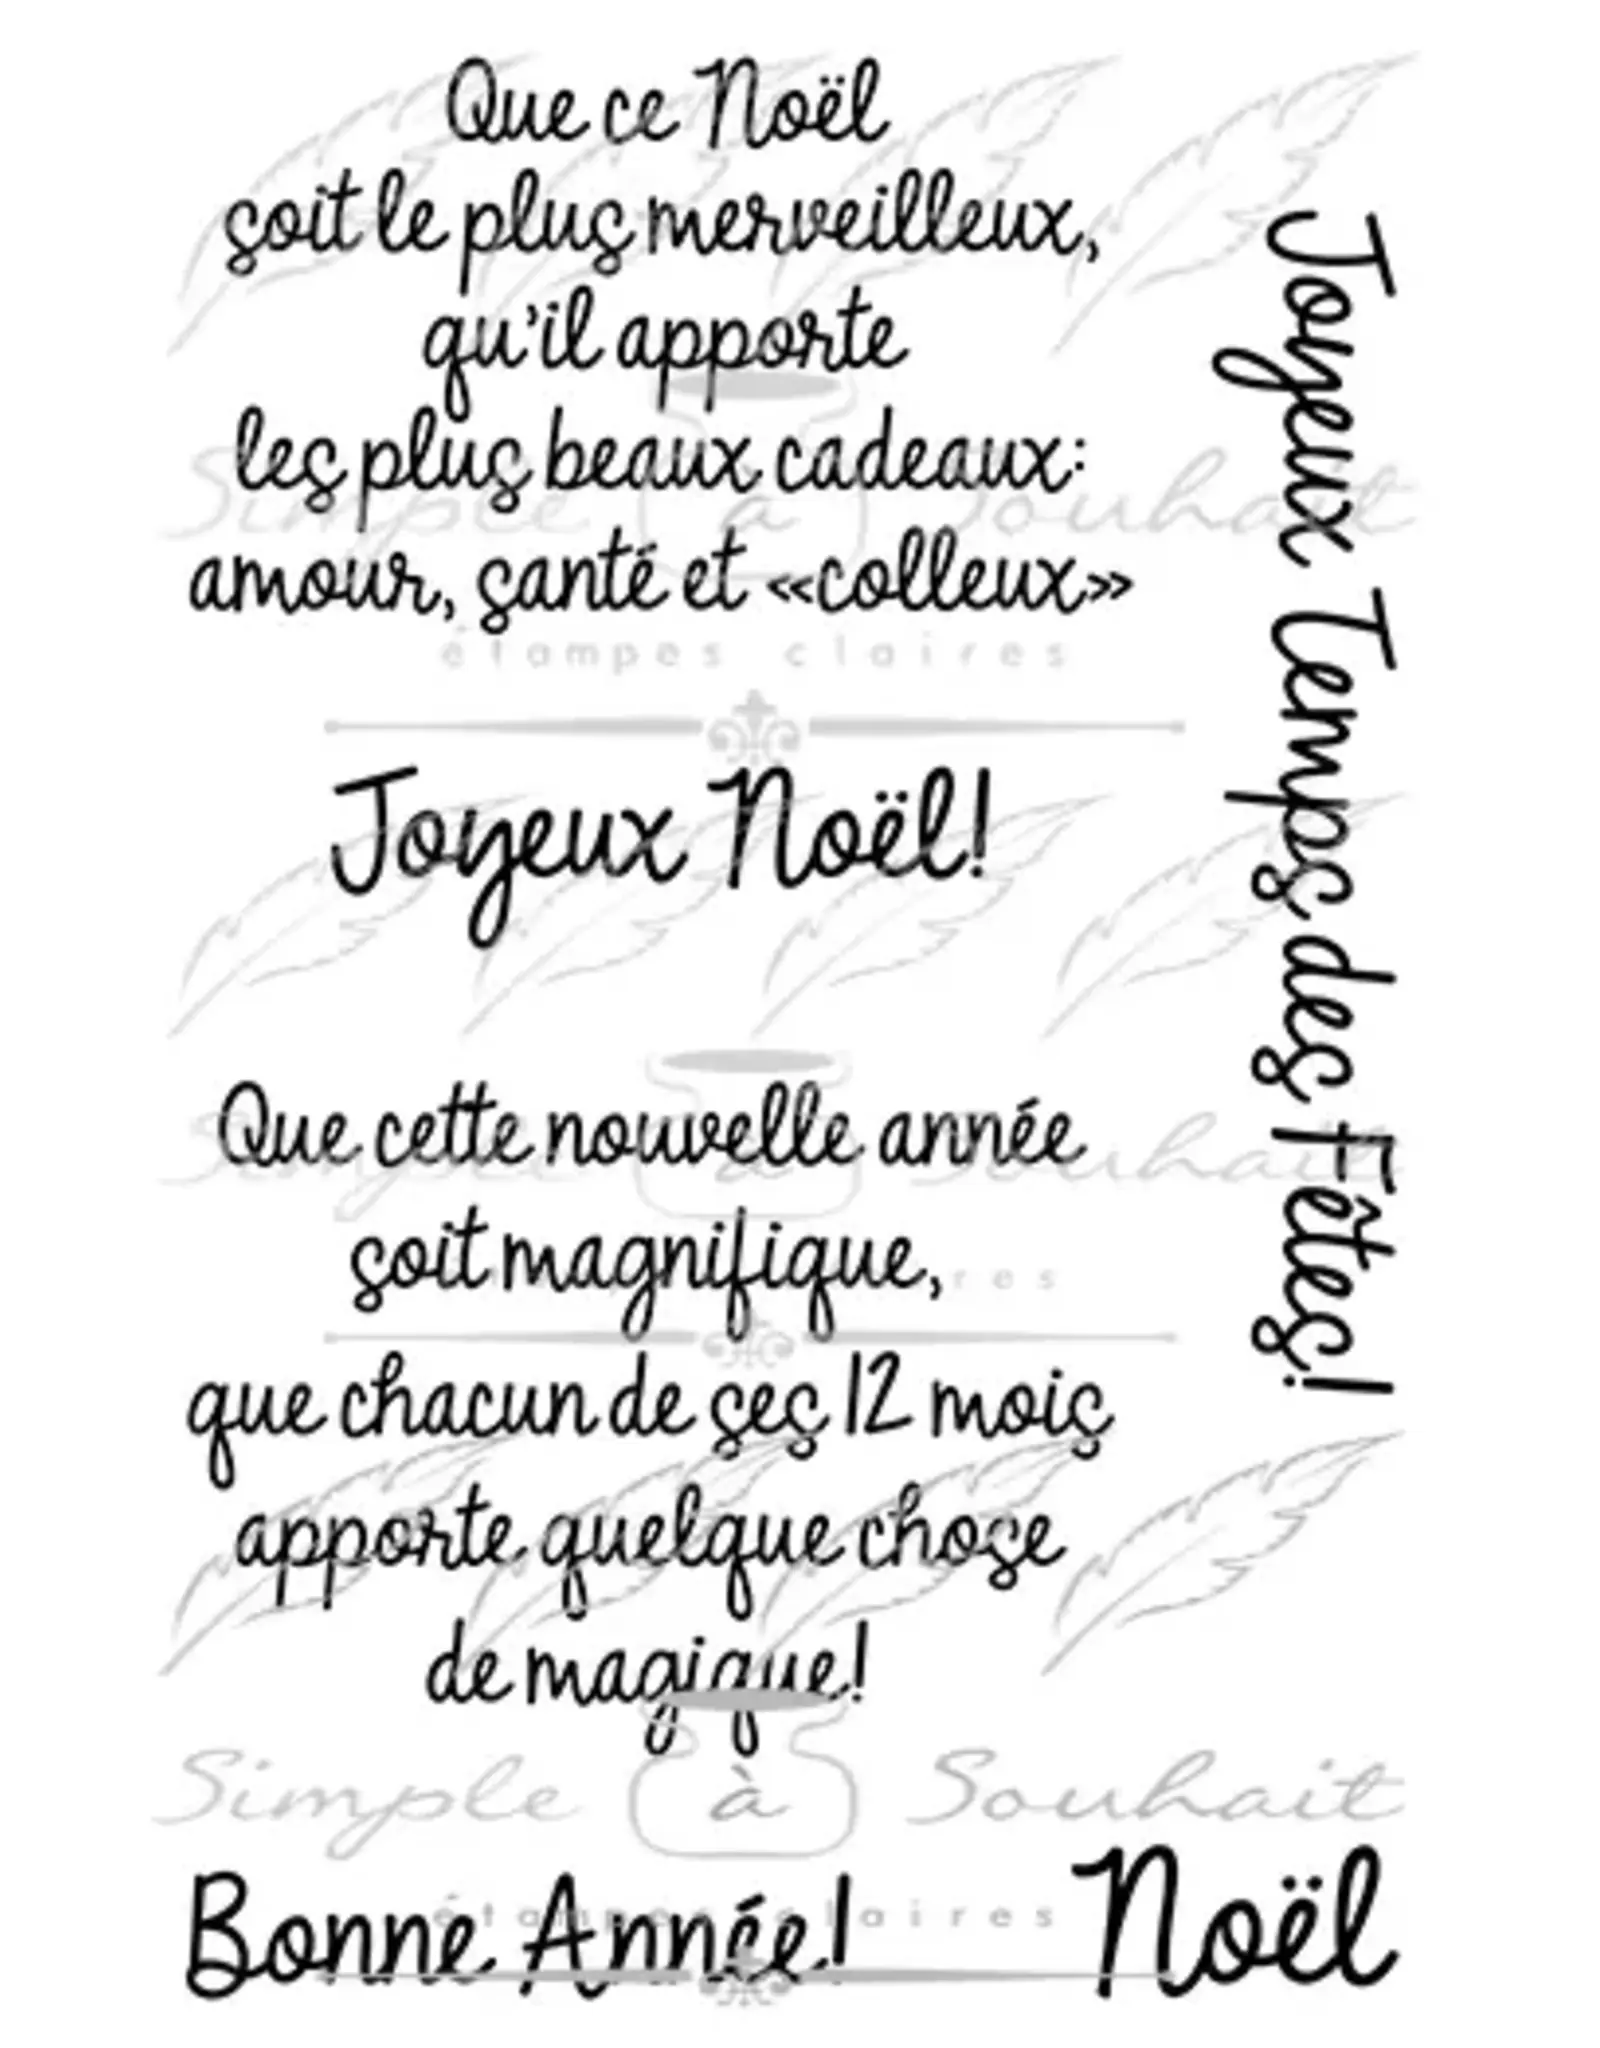 Que ce Noël
soit le plus merveilleux,
qu'il apporte
les plus beaux cadeaux:
amour, santé et «colleux»
Joyeux Temps des Fêtes!
Simple à Souhait
étampes claires
Joyeux Noël!
Que cette nouvelle année
soit magnifique,
que chacun de ses 12 mois
apporte quelque chose
de magique!
Simple à Souhait
étampes claires
Bonne Année!
Noël